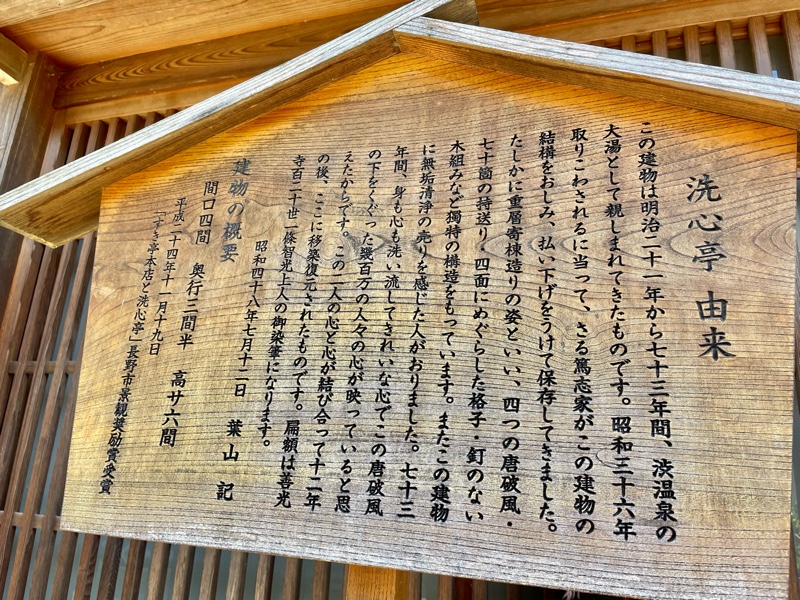 洗心亭 由来
この建物は明治二十一年から七十三年間、渋温泉の
大湯として親しまれてきたものです。昭和三十六年
取りこわされるに当って、さる篤志家がこの建物の
結構をおしみ、払い下げをうけて保存してきました。
たしかに重層寄棟造りの姿といい、四つの唐破風・
七十箇の持送り・四面にめぐらした格子・釘のない
木組みなど独特の構造をもっています。またこの建物
に無垢清浄の売りを感じた人がおりました。七十三
年間、身も心も洗い流してきれいな心でこの唐破風
の下をくぐった幾百万の人々の心が映っていると思
えたからです。この二人の心と心が結び合って十二年
の後、ここに移築復元されたものです。扁額は善光
寺百二十世一條智光上人の御染筆になります。
昭和四十八年七月十二日 葉山 記
建物の概要
間口四間 奥行三間半 高サ六間
平成二十四年十一月十九日
「すき亭本店と洗心亭」長野市景観奨励賞受賞